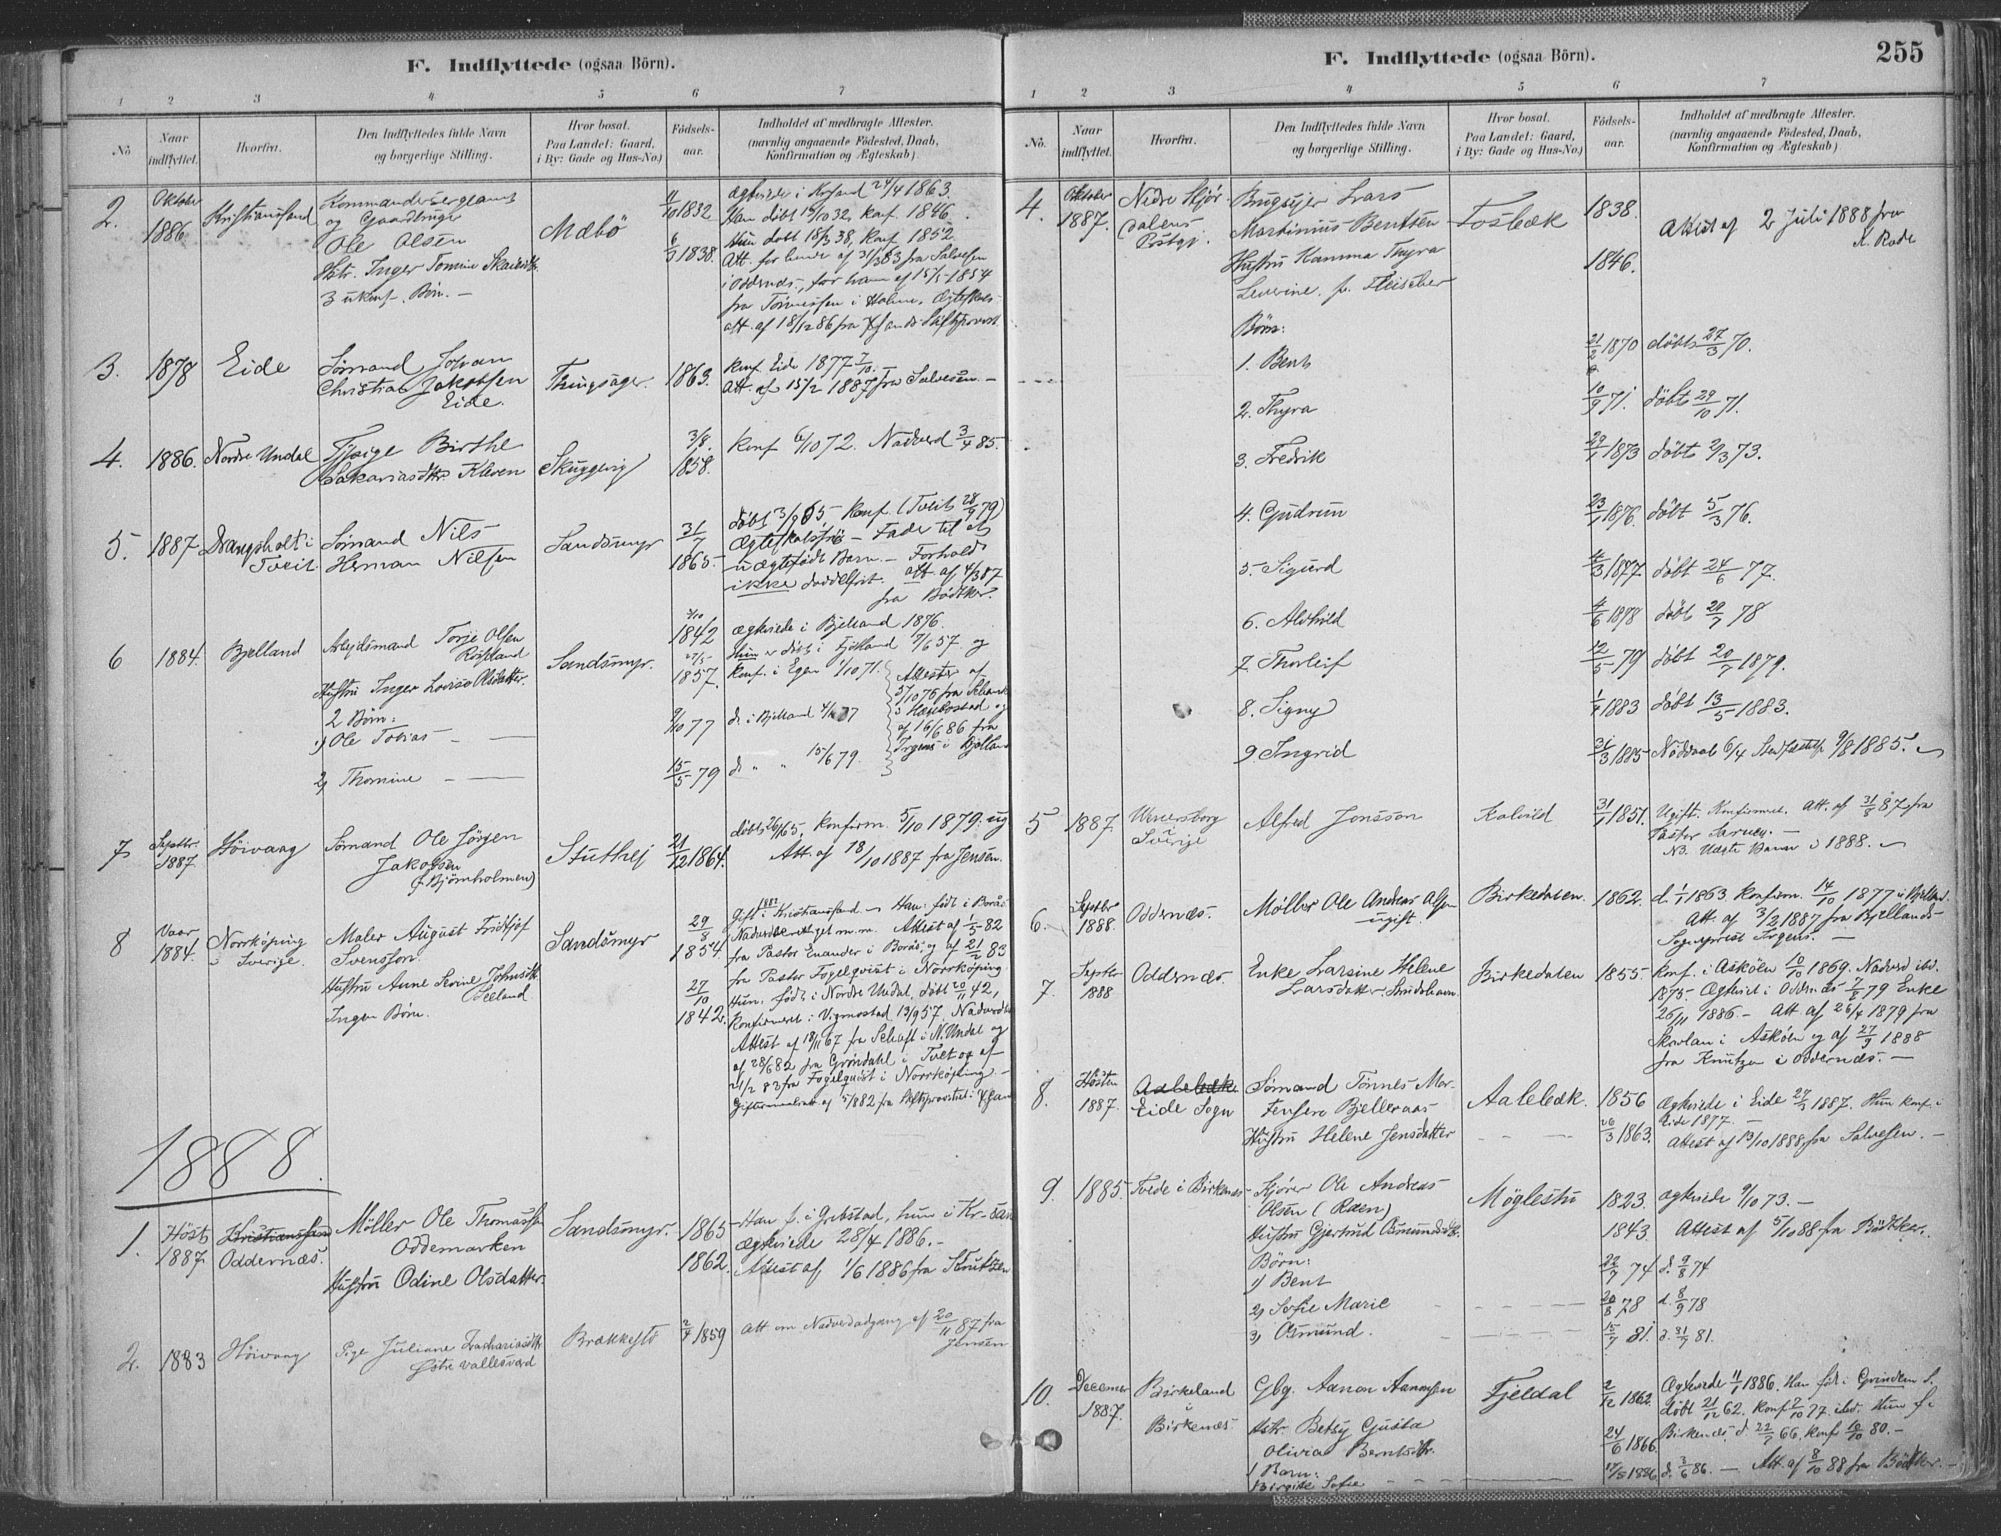 F. Indflyttede (ogsaa Börn).
1 2 3 4 5 6 7
No
Naar indflyttet.
Hvorfra.
Den Indflyttedes fulde Navn
og borgerlige Stilling.
Hvor bosat.
Paa Landet: Gaard,
i By: Gade og Hus-No.)
Födsels-
aar.
Indholdet af medbragte Attester.
(navnlig angaaende Födested, Daab,
Konfirmation og Ægteskab)
2. Oktober 1886 Kristianssand
Kommandersergeant
og Gaardbruger
Ole Olsen
Hstr. Inger Tomine
3 ukonf. Börn. —
Mæbö
1832
1838.
Ægteviede i Krsand 24/4 1863.
Han döbt 14/10 32, konf. 1846.
Hun döbt 18/3 38, konf. 1852
Att. for hende af 31/3 83 fra Salvesen
i Oddernæs, for ham af 15/5 1854
fra Tönnessen i Holme, Ægteskabs-
att. af 18/12 86 fra Kr.sands Stiftsprovst
3. 1878 Eide
Sömand Johan
Christian Jakobsen
Eide.
Thingsager. 1863.
Konf. Eide 1877 7/10.
Att. af 15/2 1887 fra Salvesen. —
4. 1886. Nordre Undal
Pige Birthe
Sakariasdtr. Kleven
Skuggevig
3/8. 1858.
Konf 6/10 72. Nadverd 3/4 85.
5. 1887 Drangsholt i Tveit
Sömand Nils
Herman Nilsen
Sandsmyr
31/7 1865.
döbt 3/9 65, konf. (Tveit 28/9 79)
Ægteskabsfri — Fader til et
uægtefödt Barn. — Forhold
ikke dadelfrit. att. af 4/3 87
fra Bödtker.
6 1884. Bjelland
Arbejdsmand Torje Olsen
Rösstad
Hustru Inger Lovise Olsdatter.
2 Börn:
1) Ole Tobias — —
2) Thomine — —
Sandsmyr.
1842
27/5 1857.
9/10 77
15/5 79
Ægteviede i Bjelland 1876.
Hun er döbt i Fjotland 7/6 57 og
konf. i Egen 1/10 71.
Attester af
31/10 76 fra
i Hægebostad og
af 16/6 86 fra
Irgens i Bjelland
d. i Bjelland
d. " " 15/6 79.
7 Septbr. 1887. Höivaag
Sömand Ole Jörgen
Jakobsen
(f. Bjørnholmen)
Stuthej
21/12 1864.
döbt 26/1 65, konfirm. 5/10 1879. ug
Att. af 18/10 1887 fra Jensen.
8 Vaar 1884. Norrköping i Sverige.
Maler August Fridtjof
Svensson.
Hustru Anne Serine Johnsdtr.
Seeland.
Ingen Börn.
Sandsmyr
29/8 1854.
27/10 1842.
Gift 1882 i Kristianssand — Han födt i Borås
Nadverdberettiget m. m. Attest af 1/5 82
fra Pastor Enander i Borås og af 21/2 83
fra Pastor Fogelqvist i Norrköping.
Hun, födt i Nordre Undal, döbt 20/11 42,
Konfirmeret i Vigmostad 13/9 57, Nadverd
Attest af 18/11 67 fra Schaft i N. Undal og
af 28/6 82 fra Gröndahl i Tveit og af
21/2 83 fra Fogelquist i Norrköping —
1888.
1. Höst 1887 Kristianssand
Oddernæs.
Möller Ole Thomassen
Oddemarken
Hustru Odine Olsdatter.
Sandsmyr. 1865
1862.
Han f. i Grebstad, hun i Kr-san
Ægteviede 28/4 1886. —
Attest af 1/6 1886 fra Knutzen
2. 1883 Höivaag
Pige Juliane Zachariasdtr
Östre Vallesværd
Brækkestö
1859
Att om Nadverdadgang af 20/11 87 fra
Jensen
F. Indflyttede (ogsaa Börn).
255
1 2 3 4 5 6 7
No.
Naar indflyttet.
Hvorfra.
Den Indflyttedes fulde Navn
og borgerlige Stilling.
Hvor bosat.
Paa Landet: Gaard,
i By: Gade og Hus-No.)
Födsels-
aar.
Indholdet af medbragte Attester.
(navnlig angaaende Födested, Daab,
Konfirmation og Ægteskab)
4. Oktober 1887. Nedre Stjör-
dalens
Prstgj.
Brugsejer Lars
Martinius Bentsen
Hustru Kamma Thyra
Severine f. Fleischer
Fosbæk
1838.
1846.
Attest af 2 Juli 1888 fra
K. Rode
Börn:
1. Bent 21/2 1870 döbt 27/3 70.
2. Thyra 10/9 71. döbt 29/10 71.
3. Fredrik 29/1 1873 döbt 2/3 73.
4. Gudrun 23/1 1876. döbt 5/3 76.
5. Sigurd 4/3 1877. döbt 24/6 77.
6. Alvhild 4/6 1878 döbt 20/7 78
7. Thorleif 12/5 79 döbt 20/7 1879.
8. Signy 1/4 1883 döbt 13/5 1883.
9. Ingrid 31/3 1885 Nöddaab 6/4 Stadfæstelse 9/8 1885.
5 1887. Wenersborg
i
Sverige
Alfred Jonsson
Kalvild
31/1 1851.
Ugift. Konfirmeret. Att. af 31/8 87 fra
Pastor
NB. Uægte Barn 1888.
6. Septbr 1888. Oddernæs.
Møller Ole Andreas Olsen
ugift.
Birkedalen. 1862.
d. 1/1 1863 konfirm. 14/10 1877 i Bjelland.
Att. af 3/2 1887 fra Bjellands-
Sogneprest Irgens. —
7. Septbr 1888 Oddernæs
Enke Larsine Helene
Larsdatter
Birkedalen 1855
Konf. i Askölen 10/10 1869. Nadverd ibd.
1875. Ægteviet i Oddernæs 7/8 79 Enke
26/11 1886. — Att. af 26/4 1879 fra
Skovlan i Askölen og af 27/9 1888
fra Knutzen i Oddernæs. —
8. Hösten 1887. Aalebæk
Eide Sogn
Sömand Tönnes Mar-
Jensen Bjelleraas
Hustru Helene Jensdatter
Aalebæk. 1856
26/3 1863.
Ægteviede i Eide 27/3 1887. Hun konf. i
Eide 1877. —
Attest af 13/10 1888 fra Salvesen. —
9. 1885. Tvede i Birkenæs
Kjörer Ole Andreas
Olsen (Raen)
Hustru Gjertrud Osmundsdtr.
Möglestu 1823.
1843.
Ægteviede 9/10 73. —
Attest af 5/10 88 fra Bödtker.
Börn:
1) Bent 22/7 74 d. 9/8 74
2) Sofie Marie 20/8 78 d. 8/9 78
3) Osmund. 15/7 81. d. 31/7 81.
10. Decemer 1887. Birkeland
i
Birkenæs.
Gbg. Aanon Aanonsen
Hstr. Betsy Gusta
Olivia Berntsdtr.
1 Barn:
Birgitte Sofie
Fjeldal
2/12 1862.
24/6 1866.
1886.
Ægteviede 11/1 1886. Han föd i Grindem S.
döbt 21/12 62. konf. 7/10 77. ibd. Hun f. i
Birkenæs, d. 22/7 66, konf 10/10 80. —
d. 3/6 86. — Att. af 8/10 88 fra Bödtker. —